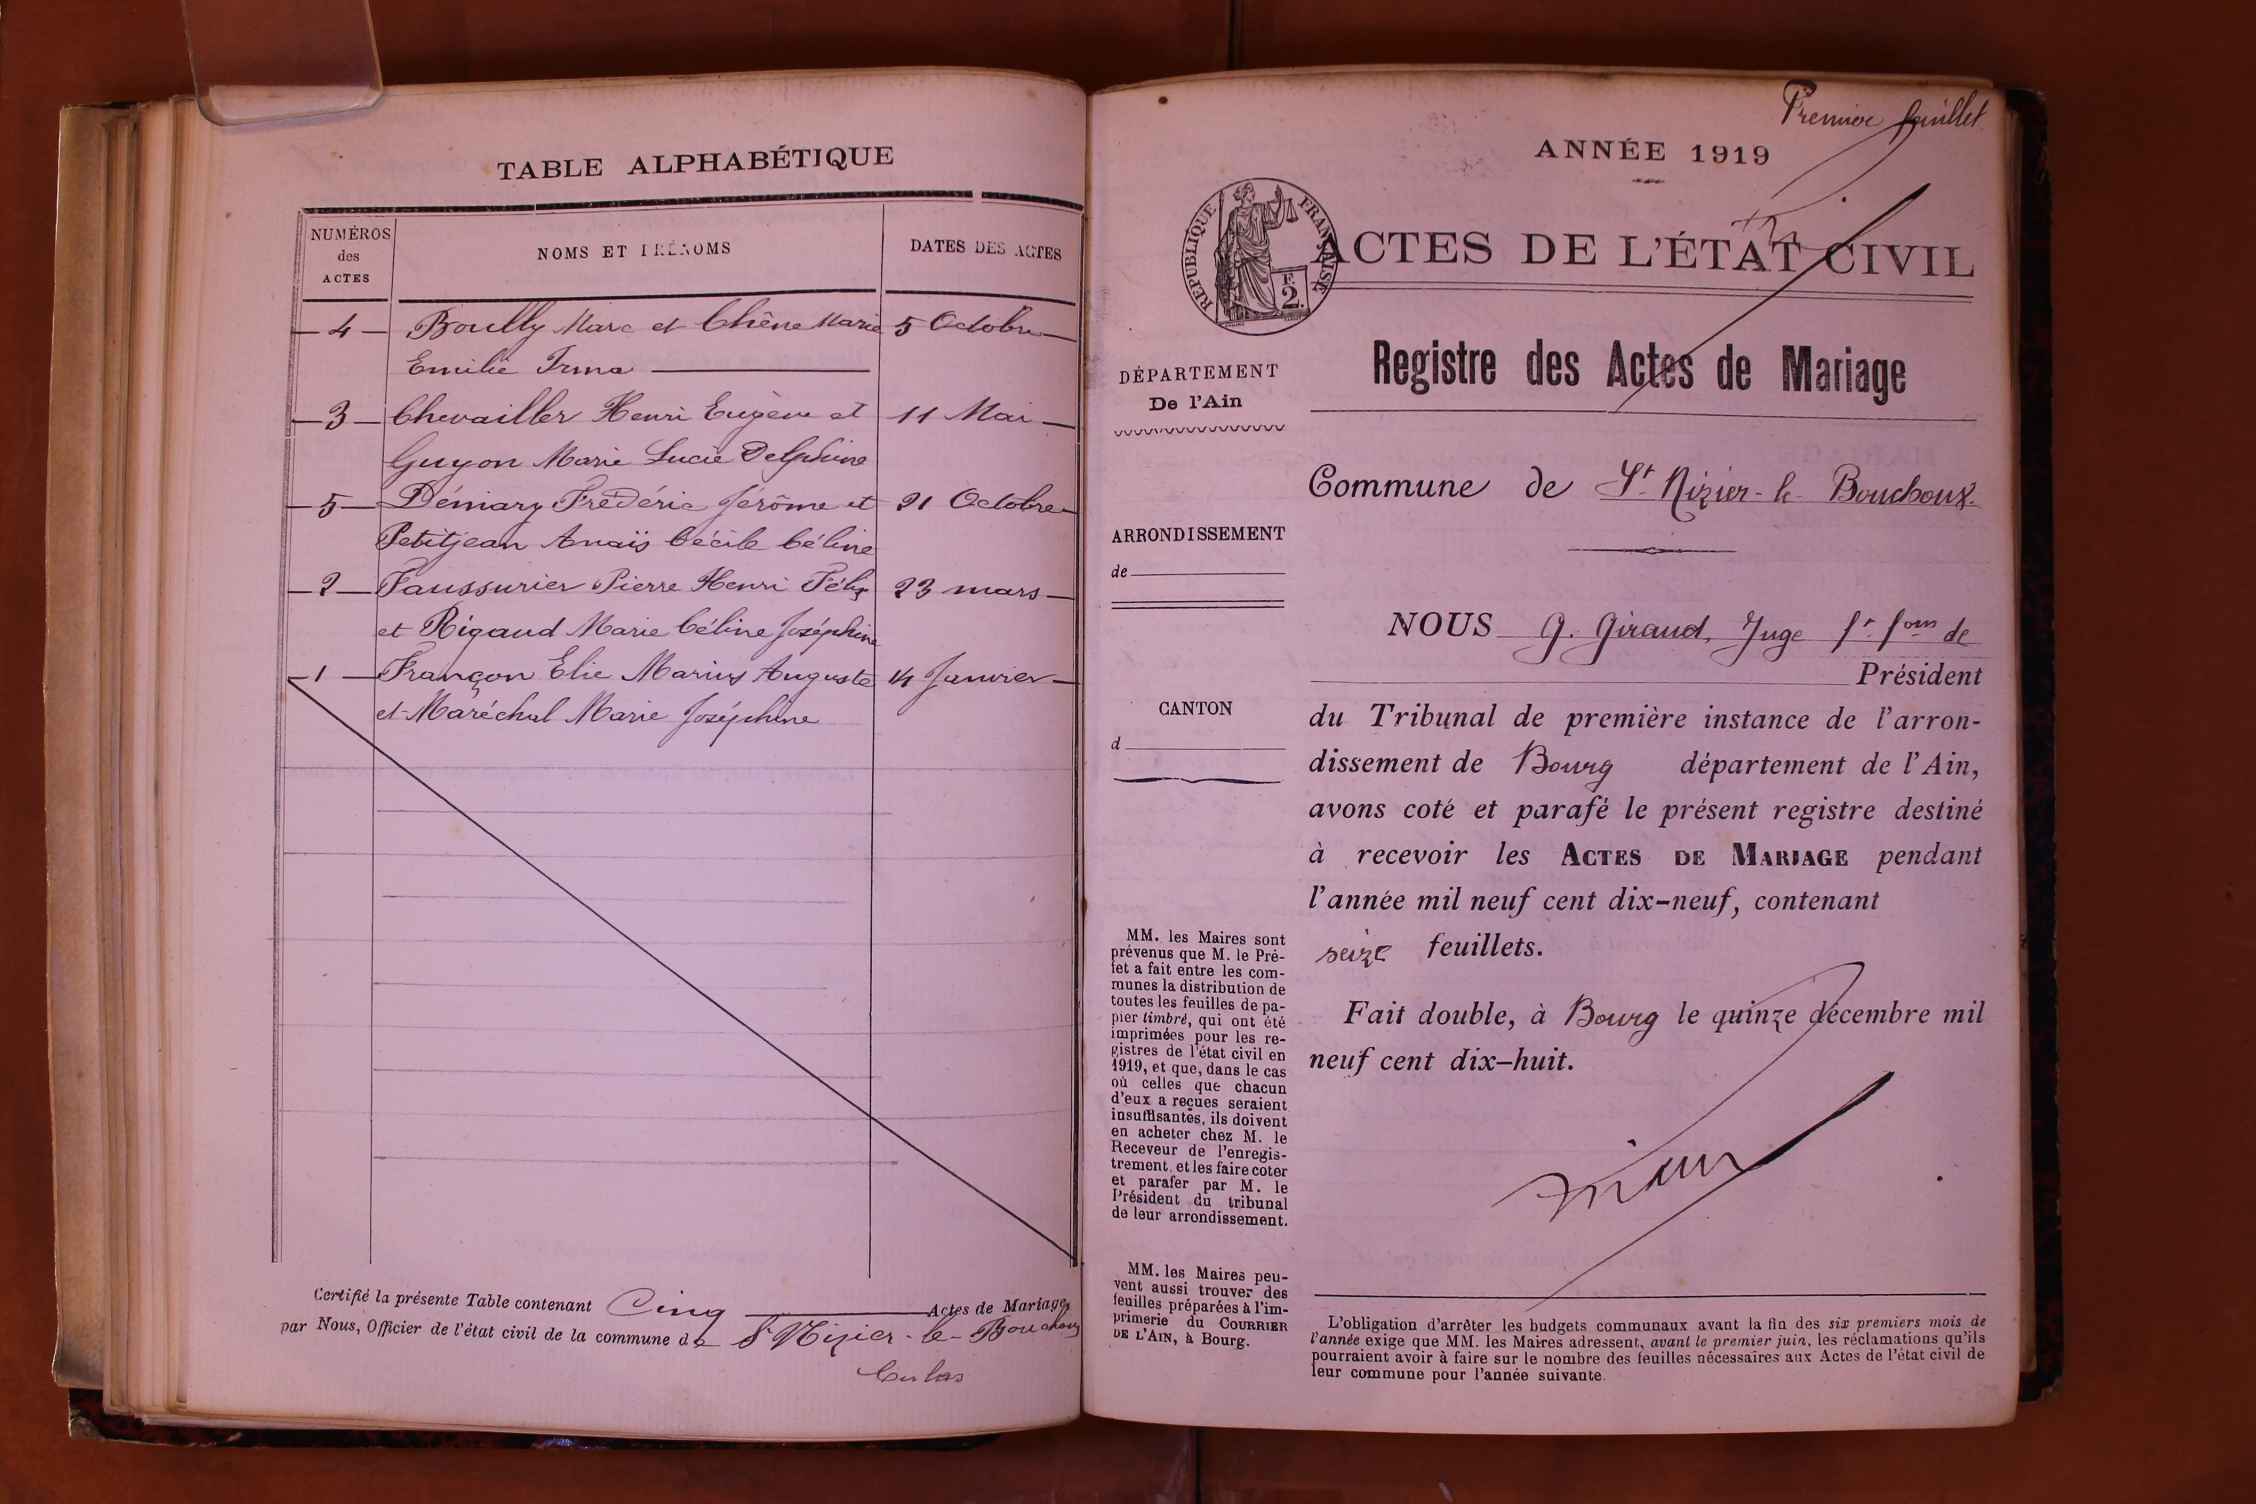 TABLE ALPHABÉTIQUE
NUMÉROS
des
ACTES
NOMS ET PRÉNOMS
DATES DES ACTES
4 Bouilly Marc et Chêne Marie 5 Octobre
Emilie Irma
3 Chevailler Henri Eugène et 11 Mai
Guyon Marie Lucie Delphine
5 Démiary Frédéric Jérôme et 21 Octobre
Petitjean Anaïs Cécile Céline
2 Faussurier Pierre Henri Félix 23 mars
et Rigaud Marie Céline Joséphine
1 Françon Elie Marius Auguste 14 Janvier
et Maréchal Marie Joséphine
Certifié la présente Table contenant Cinq Actes de Mariage,
par Nous, Officier de l'état civil de la commune de St Nizier-le-Bouchoux
Premier feuillet
ANNÉE 1919
RÉPUBLIQUE FRANÇAISE
F.
2.
ACTES DE L'ÉTAT CIVIL
Registre des Actes de Mariage
DÉPARTEMENT
De l'Ain
Commune de St Nizier-le-Bouchoux
ARRONDISSEMENT
de
CANTON
d
NOUS G. Giraud, Juge ft. fons de
Président
du Tribunal de première instance de l'arron-
dissement de Bourg département de l'Ain,
avons coté et parafé le présent registre destiné
à recevoir les ACTES DE MARIAGE pendant
l'année mil neuf cent dix-neuf, contenant
seize feuillets.
Fait double, à Bourg le quinze décembre mil
neuf cent dix-huit.
MM. les Maires sont
prévenus que M. le Pré-
fet a fait entre les com-
munes la distribution de
toutes les feuilles de pa-
pier timbré, qui ont été
imprimées pour les re-
gistres de l'état civil en
1919, et que, dans le cas
où celles que chacun
d'eux a reçues seraient
insuffisantes, ils doivent
en acheter chez M. le
Receveur de l'enregis-
trement, et les faire coter
et parafer par M. le
Président du tribunal
de leur arrondissement.
MM. les Maires peu-
vent aussi trouver des
feuilles préparées à l'im-
primerie du COURRIER
DE L'AIN, à Bourg.
L'obligation d'arrêter les budgets communaux avant la fin des six premiers mois de
l'année exige que MM. les Maires adressent, avant le premier juin, les réclamations qu'ils
pourraient avoir à faire sur le nombre des feuilles nécessaires aux Actes de l'état civil de
leur commune pour l'année suivante.